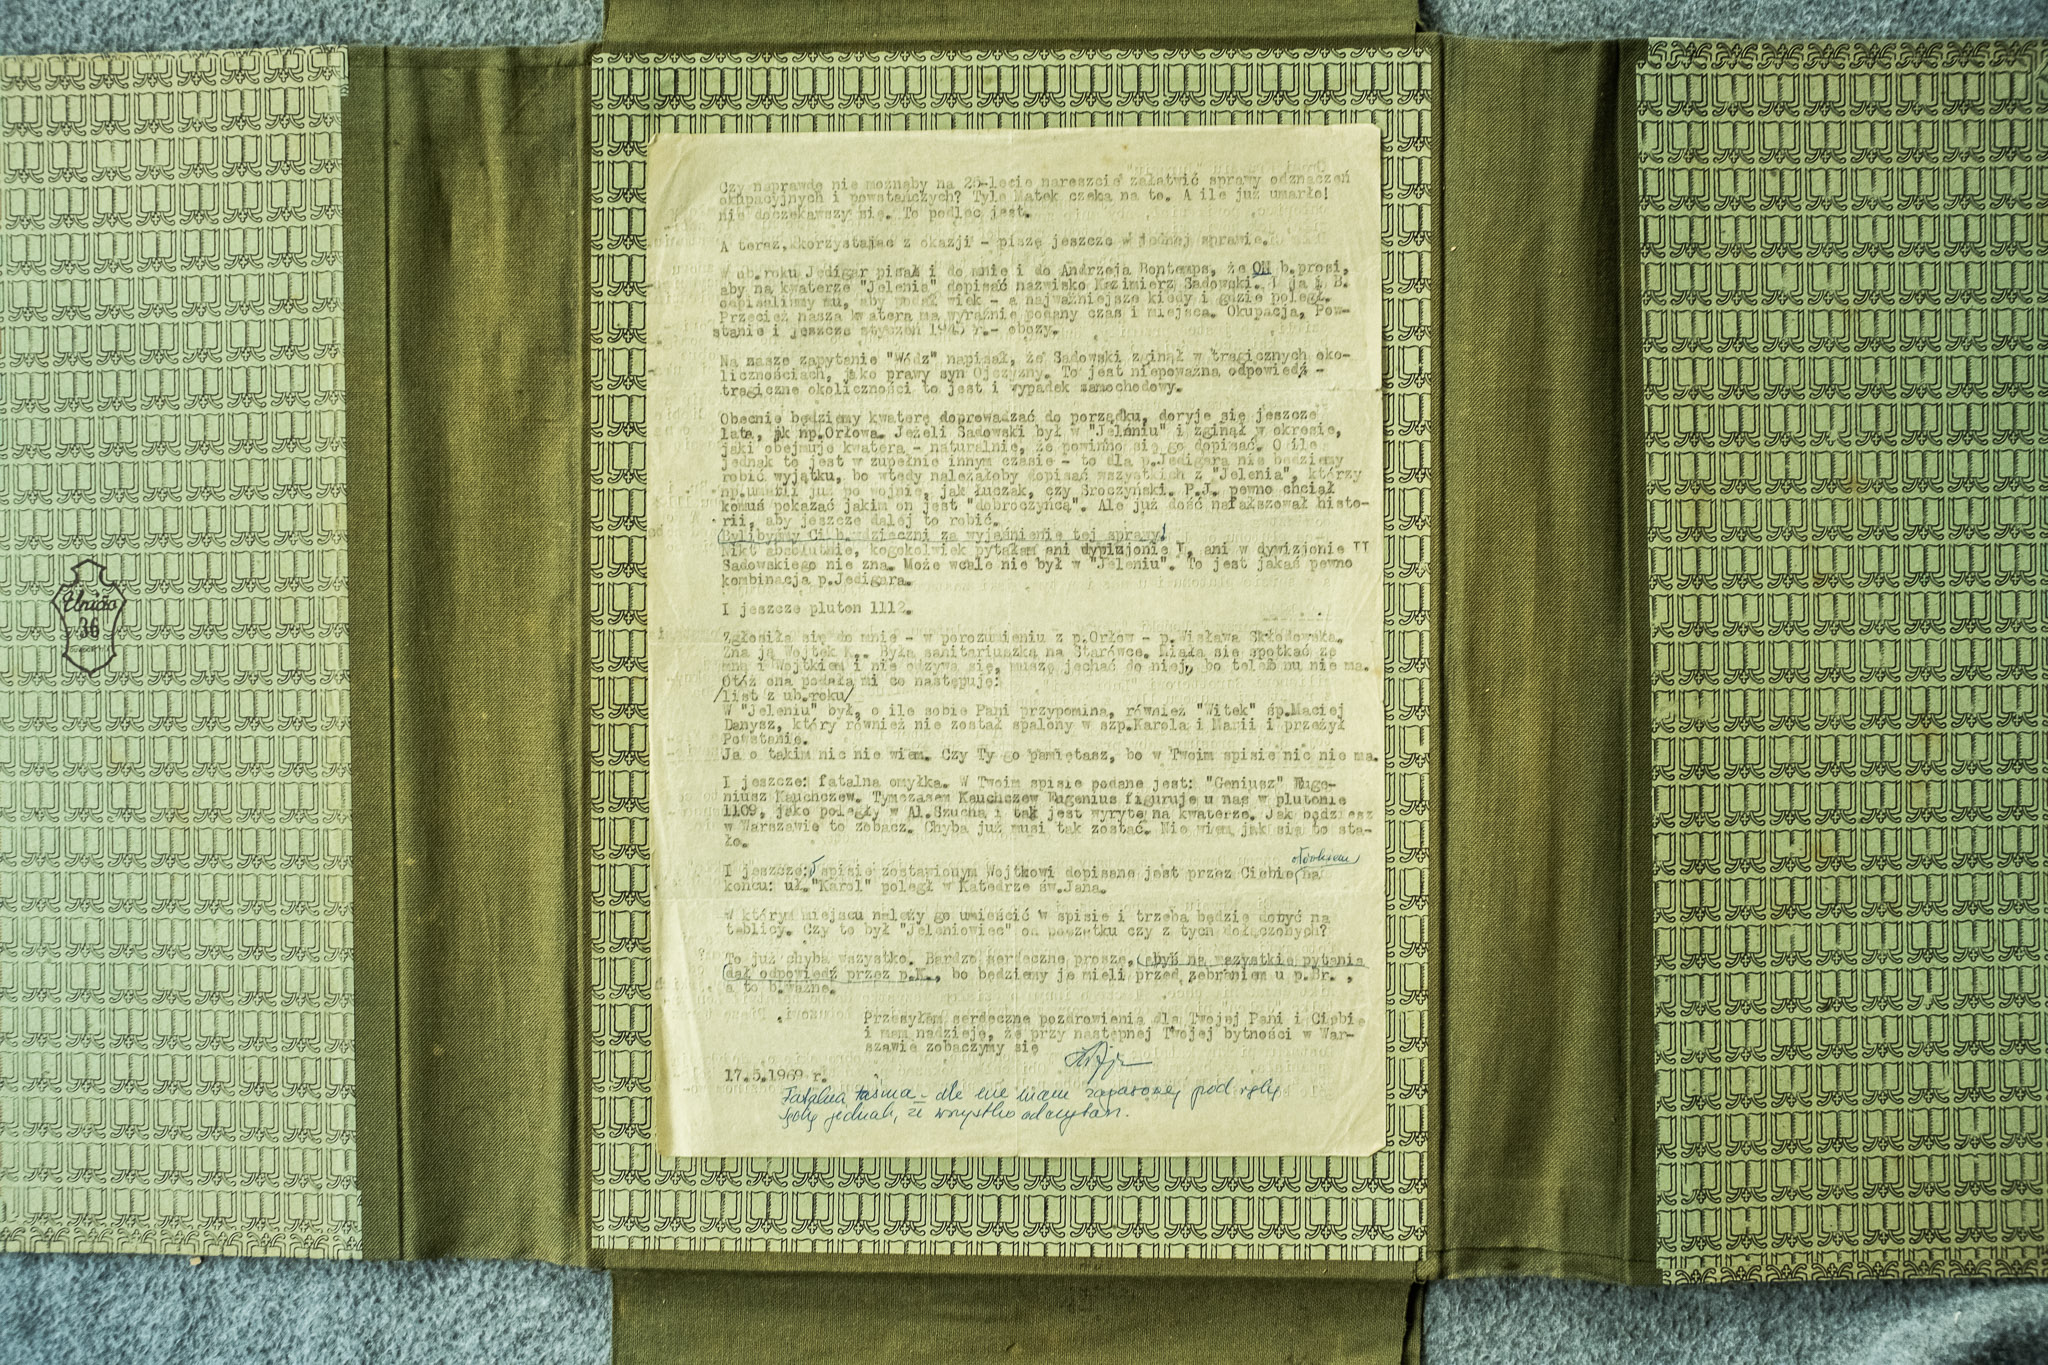 Unido
36
Czy naprawdę nie możnaby na 25-lecie nareszcie załatwić sprawy odznaczeń
okupacyjnych i powstańczych? Tyle Matek czeka na to. A ile już umarło!
nie doczekawszy się. To podłość jest.
A teraz, korzystając z okazji - piszę jeszcze w jednej sprawie.
W ub.roku Jedigar pisał i do mnie i do Andrzeja Bontemps, że ON b.prosi,
aby na kwaterze "Jelenia" dopisać nazwisko Kazimierz Sadowski. I ja i B.
odpisaliśmy mu, aby podał wiek - a najważniejsze kiedy i gdzie poległ.
Przecież nasza kwatera ma wyraźnie podany czas i miejsca. Okupacja, Pow-
stanie i jeszcze styczeń 1945 r.- obozy.
Na nasze zapytanie "Wódz" napisał, że Sadowski zginął w tragicznych oko-
licznościach, jako prawy syn Ojczyzny. To jest niepoważna odpowiedź -
tragiczne okoliczności to jest i wypadek samochodowy.
Obecnie będziemy kwaterę doprowadzać do porządku, doryje się jeszcze
lata, jk np.Orłowa. Jeżeli Sadowski był w "Jeleniu" i zginął w okresie,
jaki obejmuje kwatera - naturalnie, że powinno się go dopisać. O ile
jednak to jest w zupełnie innym czasie - to dla p.Jedigara nie będziemy
robić wyjątku, bo wtedy należałoby dopisać wszystkich z "Jelenia", którzy
np.umarli już po wojnie, jak Łuczak, czy Sroczyński. P.J. pewno chciał
komuś pokazać jakim on jest "dobroczyńcą". Ale już dość nafałszował histo-
rii, aby jeszcze dalej to robić.
Bylibyśmy Ci b.wdzięczni za wyjaśnienie tej sprawy!
Nikt absolutnie, kogokolwiek pytałam ani dywizjonie I, ani w dywizjonie II
Sadowskiego nie zna. Może wcale nie był w "Jeleniu". To jest jakaś pewno
kombinacja p.Jedigara.
I jeszcze pluton 1112.
Zgłosiła się do mnie - w porozumieniu z p.Orłow - p.Wisława Skłodowska.
Zna ją Wojtek K.. Była sanitariuszką na Starówce. Miała się spotkać ze
mną i Wojtkiem i nie odzywa się, muszę jechać do niej, bo telefonu nie ma.
Otóż ona podała mi co następuje:
/list z ub.roku/
W "Jeleniu" był, o ile sobie Pani przypomina, również "Witek" śp.Maciej
Danysz, który również nie został spalony w szp.Karola i Marii i przeżył
Powstanie.
Ja o takim nic nie wiem. Czy Ty go pamiętasz, bo w Twoim spisie nic nie ma.
I jeszcze: fatalna omyłka. W Twoim spisie podane jest: "Geniusz" Euge-
niusz Kauchczew. Tymczasem Kauchczew Eugenius figuruje u nas w plutonie
1109, jako poległy w Al.Szucha i tak jest wyryte na kwaterze. Jak będziesz
w Warszawie to zobacz. Chyba już musi tak zostać. Nie wiem jak się to sta-
ło.
ołówkiem
I jeszcze: spisie zostawionym Wojtkowi dopisane jest przez Ciebie na
końcu: uł."Karol" poległ w Katedrze św.Jana.
W którym miejscu należy go umieścić w spisie i trzeba będzie dobyć na
tablicy. Czy to był "Jeleniowiec" od początku czy z tych dołączonych?
To już chyba wszystko. Bardzo serdecznie proszę, abyś na wszystkie pytania
dał odpowiedź przez p.K., bo będziemy je mieli przed zebraniem u p.Br. ,
a to b.ważne.
Przesyłam serdeczne pozdrowienia dla Twojej Pani i Ciebie
i mam nadzieję, że przy następnej Twojej bytności w War-
szawie zobaczymy się
17.5.1969 r.
Fatalna taśma - ale nie mam zapasowej pod ręką
Sądzę jednak, że wszystko odczytasz.